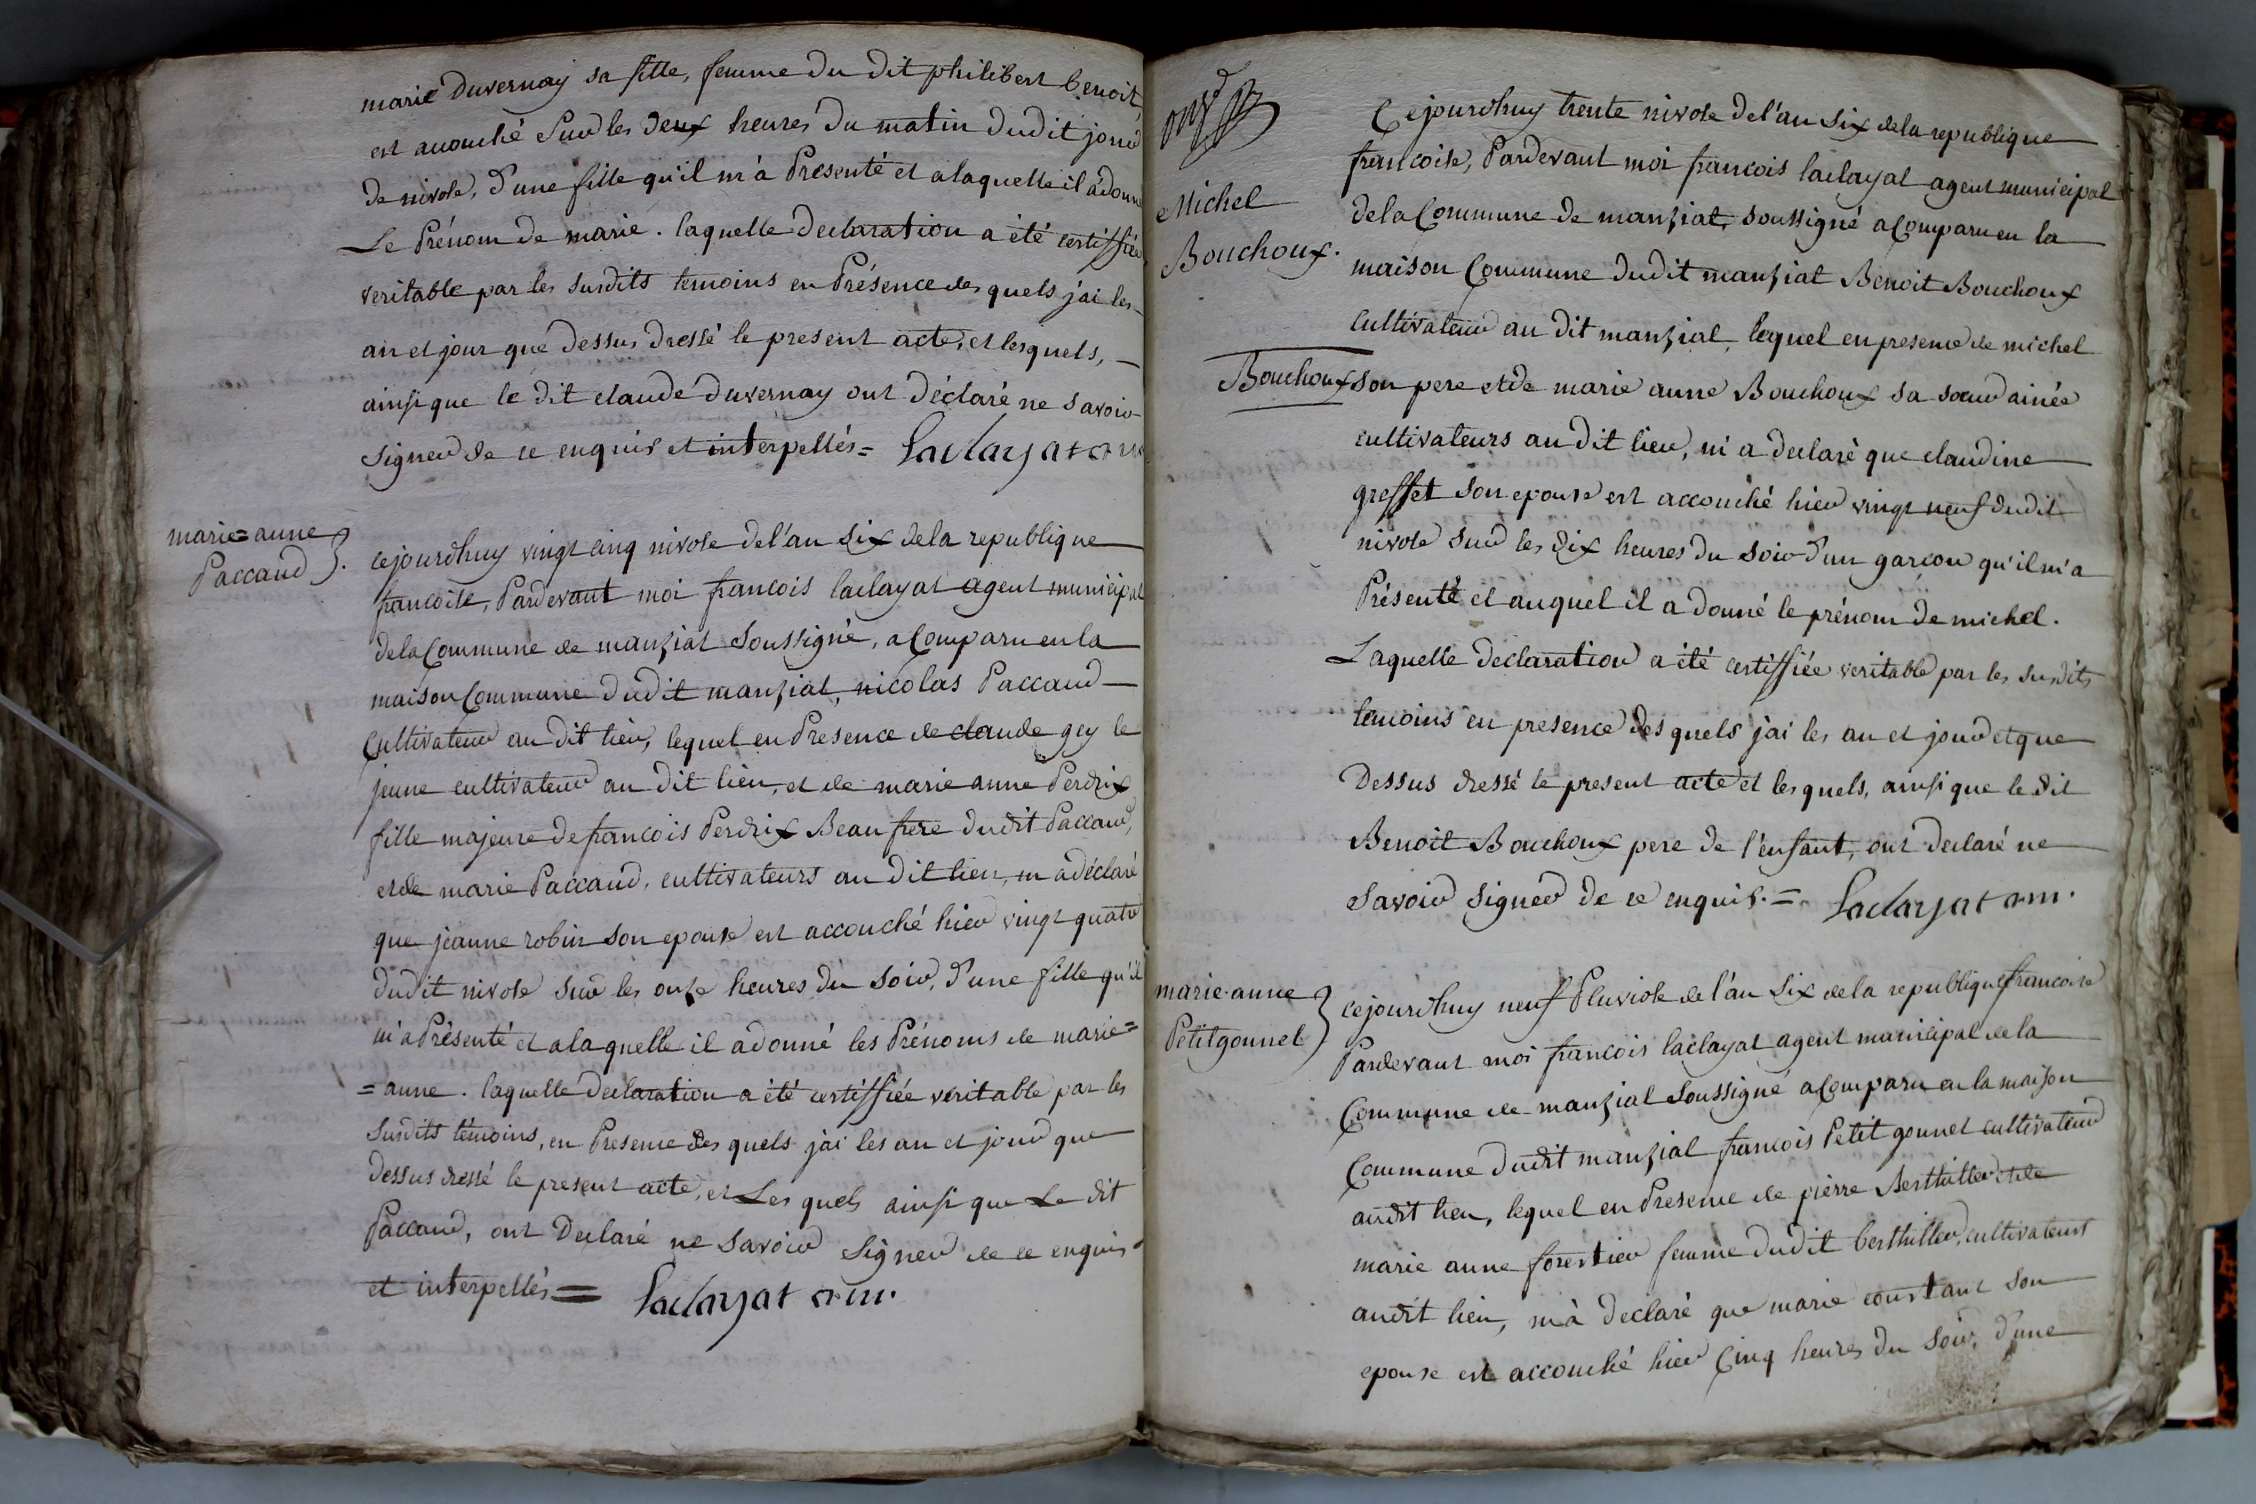 marie Duvernay sa fille, femme du dit philibert benoit,
est accouché Sur les deux heures du matin dudit jour
de nivose, d'une fille qu'il m'à Presenté et alaquelle il àdonné
Le Prénom de marie. laquelle declaration a été certiffiée
veritable par les susdits temoins en Présence des quels j'ai les
an et jour que dessus dressé le present acte, et lesquels,
ainsi que le dit claude duvernay ont déclaré ne savoir
signer de ce enquis et interpellés = Laclayat am
marie=anne
Paccaud
cejourdhuy vingt cinq nivose del'an Six dela republique
francoise, Pardevant moi francois laclayat agent municipal
dela Commune de manziat Soussigné, a Comparu en la
maison Commune dudit manziat, nicolas Paccaud
Cultivateur au dit lieu, lequel en Presence de claude guy le
jeune cultivateur au dit lieu, et de marie anne Perdrix
fille majeure de francois Perdrix Beau frere dudit Paccaud,
et de marie Paccaud, cultivateurs au dit lieu, m'a déclaré
que jeanne robin son epouse est accouché hier vingt quatre
dudit nivose sur les onze heures du soir, d'une fille qu'il
m'a Présenté et alaquelle il adonné les Prénoms de marie=
=anne. laquelle declaration a été certiffiée veritable par les
susdits témoins, en Presence des quels j'ai les an et jour que
dessus dressé le present acte, et Les quels ainsi que Le dit
Paccaud, ont Declaré ne savoir signer de ce enquis
et interpellés = Laclayat am.
Michel
Bouchoux.
Bouchoux
Cejourdhuy trente nivose del'an Six dela republique
francoise, Pardevant moi francois laclayat agent municipal
dela Commune de manziat, soussigné a Comparu en la
maison Commune dudit manziat Benoit Bouchoux
cultivateur au dit manziat, lequel en presence de michel
son pere et de marie anne Bouchoux sa soeur ainée
cultivateurs au dit lieu, m'a declaré que claudine
greffet son epouse est accouché hier vingt neuf dudit
nivose sur les dix heures du soir d'un garçon qu'il m'a
Présenté et auquel il a donné le prénom de michel.
Laquelle declaration a été certiffiée veritable par les susdits
temoins en presence des quels j'ai les an et jour et que
Dessus dressé le present acte et les quels, ainsi que le dit
Benoit Bouchoux pere de l'enfant, ont declaré ne
savoir signer de ce enquis. = Laclayat am.
marie-anne
Petitgonnet
cejourdhuy neuf Pluviose de l'an Six dela republique francoise
Pardevant moi francois laclayat agent municipal dela
Commune de manziat Soussigné a Comparu en la maison
Commune dudit manziat francois Petit gonnet cultivateur
audit lieu, lequel en Presence de pierre Berthillier et de
marie anne forestier femme dudit berthillier, cultivateurs
audit lieu, m'à declaré que marie constant son
epouse est accouché hier Cinq heures du soir, d'une